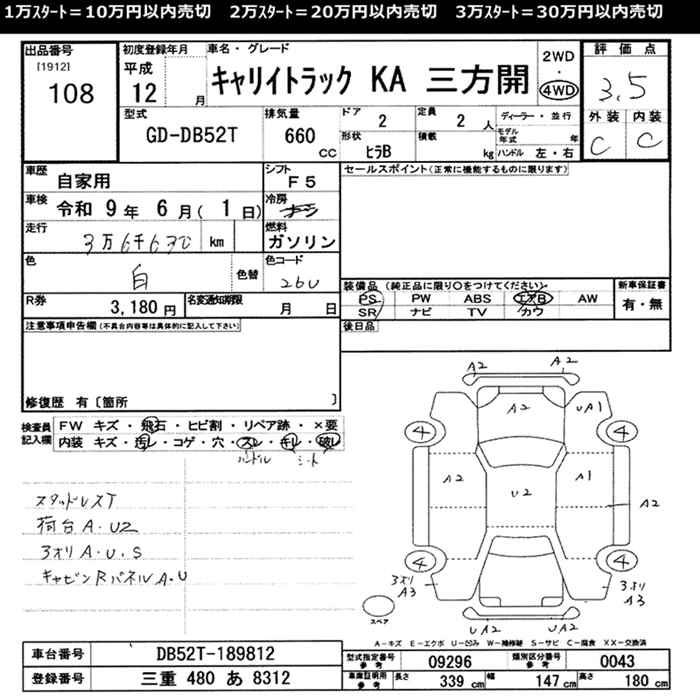 1万ｽﾀｰﾄ＝10万円以内売切　2万ｽﾀｰﾄ＝20万円以内売切　3万ｽﾀｰﾄ＝30万円以内売切
出品番号
[1912]
108
初度登録年月
平成
12 月
車名・グレード
キャリイトラック KA 三方開
2WD
・
4WD
評価点
3.5
外装 内装
C C
型式
GD-DB52T
排気量
660
CC
ドア
2
定員
2 人
ディーラー・並行
モデル年式 年
形状
ﾋﾗB
積載
kg
ハンドル 左・右
車歴
自家用
シフト
F5
セールスポイント(正常に機能するものに限ります)
車検
令和 9 年 6 月( 1 日)
冷房
走行
3万6千630 km
燃料
ガソリン
色
白
色替
色コード
26U
装備品 (純正品に限り○をつけてください)
新車保証書
PS PW ABS エアB AW
有・無
SR ナビ TV カワ
R券
3,180 円
名変通知期限
月 日
後日品
注意事項申告欄(不具合内容等は具体的に記入して下さい)
修復歴 有〔箇所 〕
検査員記入欄
FW キズ・飛石・ヒビ割・リペア跡・×要
内装 キズ・汚レ・コゲ・穴・スレ・キレ・破レ
ハンドル シート
スタッドレスT
荷台A・U2
3オリA・U・S
キャビンRパネルA・U
A2 A2
A2 UA1
4 4
A2 U2 A1 A2
4 4
3オリ
A3
3オリ
A3
スペア
UA2 UA2
A－キズ E－エクボ U－凹ミ W－補修跡 S－サビ C－腐食 XX－交換済
車台番号
DB52T-189812
型式指定番号
参考
09296
類別区分番号
参考
0043
登録番号
三重 480 あ 8312
車庫証明用
参考
長さ
339 cm
幅
147 cm
高さ
180 cm